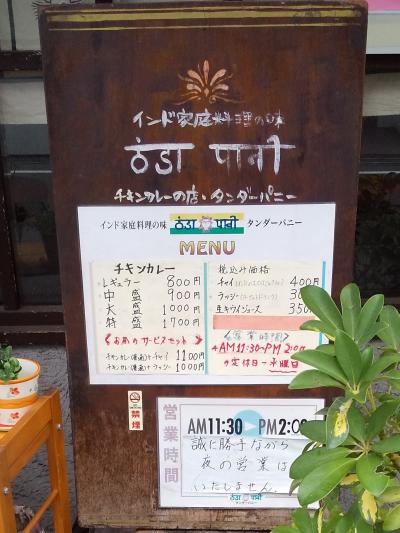 インド家庭料理の味
ठंडा पानी
チキンカレーの店・タンダーパニー
インド家庭料理の味 ठंडा पानी タンダーパニー
MENU
チキンカレー
レギュラー 800円
中盛 900円
大盛 1000円
特盛 1700円
お昼のサービスセット
チキンカレー(普通)+チャイ 1100円
チキンカレー(普通)+ラッシー 1000円
税込み価格
チャイ 400円
ラッシー
生キウイジュース 350
営業時間
AM11:30~PM 2:00
定休日-水曜日
禁煙
営業時間
AM11:30 PM2:00
誠に勝手ながら
夜の営業は
いたしません。
ठंडा पानी
タンダーパニー